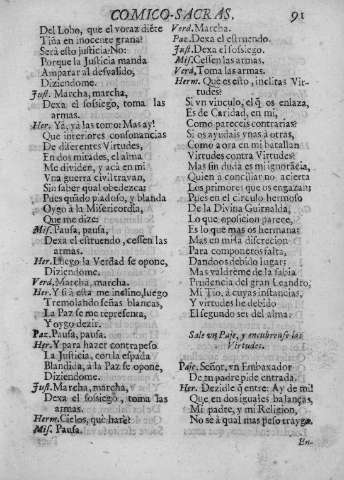 COMICO-SACRAS. 91
Del Lobo, que el voraz diēte
Tiña en inocente grana?
Será esto justicia? No:
Porque la Justicia manda
Amparar al desvalido,
Diziendome.
Just. Marcha, marcha,
Dexa el sossiego, toma las
armas.
Her. Yá, yá las tomo: Mas ay!
Que interiores consonancias
De diferentes Virtudes,
En dos mitades, el alma
Me dividen, y acá en mi
Vna guerra civil travan,
Sin saber qual obedezca:
Pues quādo piadoso, y blanda
Oygo à la Misericordia,
Que me dize:
Mis. Pausa, pausa,
Dexa el estruendo, cessen las
armas.
Her. Luego la Verdad se opone,
Diziendome.
Verd. Marcha, marcha.
Her. Y si à esta me inclino, luego
Tremolando señas blancas,
La Paz se me representa,
Y oygo dezir.
Paz. Pausa, pausa.
Her. Y para hazer contrapeso
La Justicia, con la espada
Blandida, à la Paz se opone,
Diziendome.
Just. Marcha, marcha,
Dexa el sossiego, toma las
armas.
Herm. Cielos, què harè?
Mis. Pausa.
Verd. Marcha.
Paz. Dexa el estruendo.
Just. Dexa el sossiego.
Mis. Cessen las armas.
Verd. Toma las armas.
Herm. Que es esto, inclitas Vir-
tudes?
Si vn vinculo, el q̄ os enlaza,
Es de Caridad, en mi,
Como pareceis contrarias?
Si os ayudais vnas à otras,
Como aora en mi batallan
Virtudes contra Virtudes?
Mas sin duda es mi ignorācia,
Quien à conciliar no acierta
Los primores que os engazan;
Pues en el circulo hermoso
De la Divina Guirnalda,
Lo que oposicion parece,
Es lo que mas os hermana:
Mas en mi la discrecion
Para componeros falta,
Dandoos debido lugar;
Mas valdréme de la sabia
Prudencia del gran Leandro,
Mi Tio, à cuyas instancias,
Y virtudes he debido
El segundo ser del alma.
Sale vn Paje, y encubrense las
Virtudes.
Paje. Señor, vn Embaxador
De tu padre pide entrada.
Her. Dezidle q̄ entre: Ay de mi!
Que en dos iguales balanças,
Mi padre, y mi Religion,
No sè à qual mas peso trayga.
En-